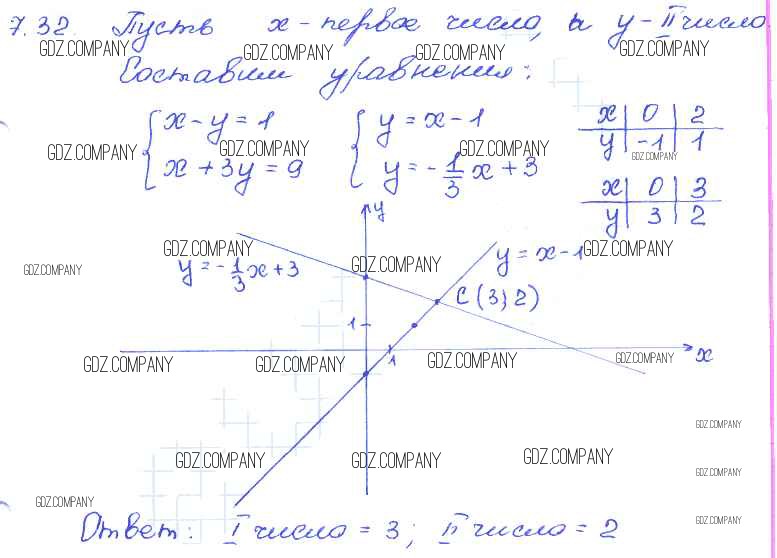 7.32. Пусть x - первое число, а y - II число
GDZ.COMPANY GDZ.COMPANY GDZ.COMPANY GDZ.COMPANY
Составим уравнения:
{ x - y = 1 { y = x - 1 x | 0 | 2
GDZ.COMPANY GDZ.COMPANY GDZ.COMPANY y | -1 | 1
GDZ.COMPANY
x + 3y = 9 y = -1/3 x + 3 x | 0 | 3
y | 3 | 2
y
GDZ.COMPANY GDZ.COMPANY
y = -1/3 x + 3 y = x - 1
GDZ.COMPANY GDZ.COMPANY
C (3; 2)
1
1 x
GDZ.COMPANY GDZ.COMPANY GDZ.COMPANY GDZ.COMPANY
GDZ.COMPANY
GDZ.COMPANY GDZ.COMPANY GDZ.COMPANY
GDZ.COMPANY
GDZ.COMPANY
GDZ.COMPANY
Ответ: I число = 3; II число = 2